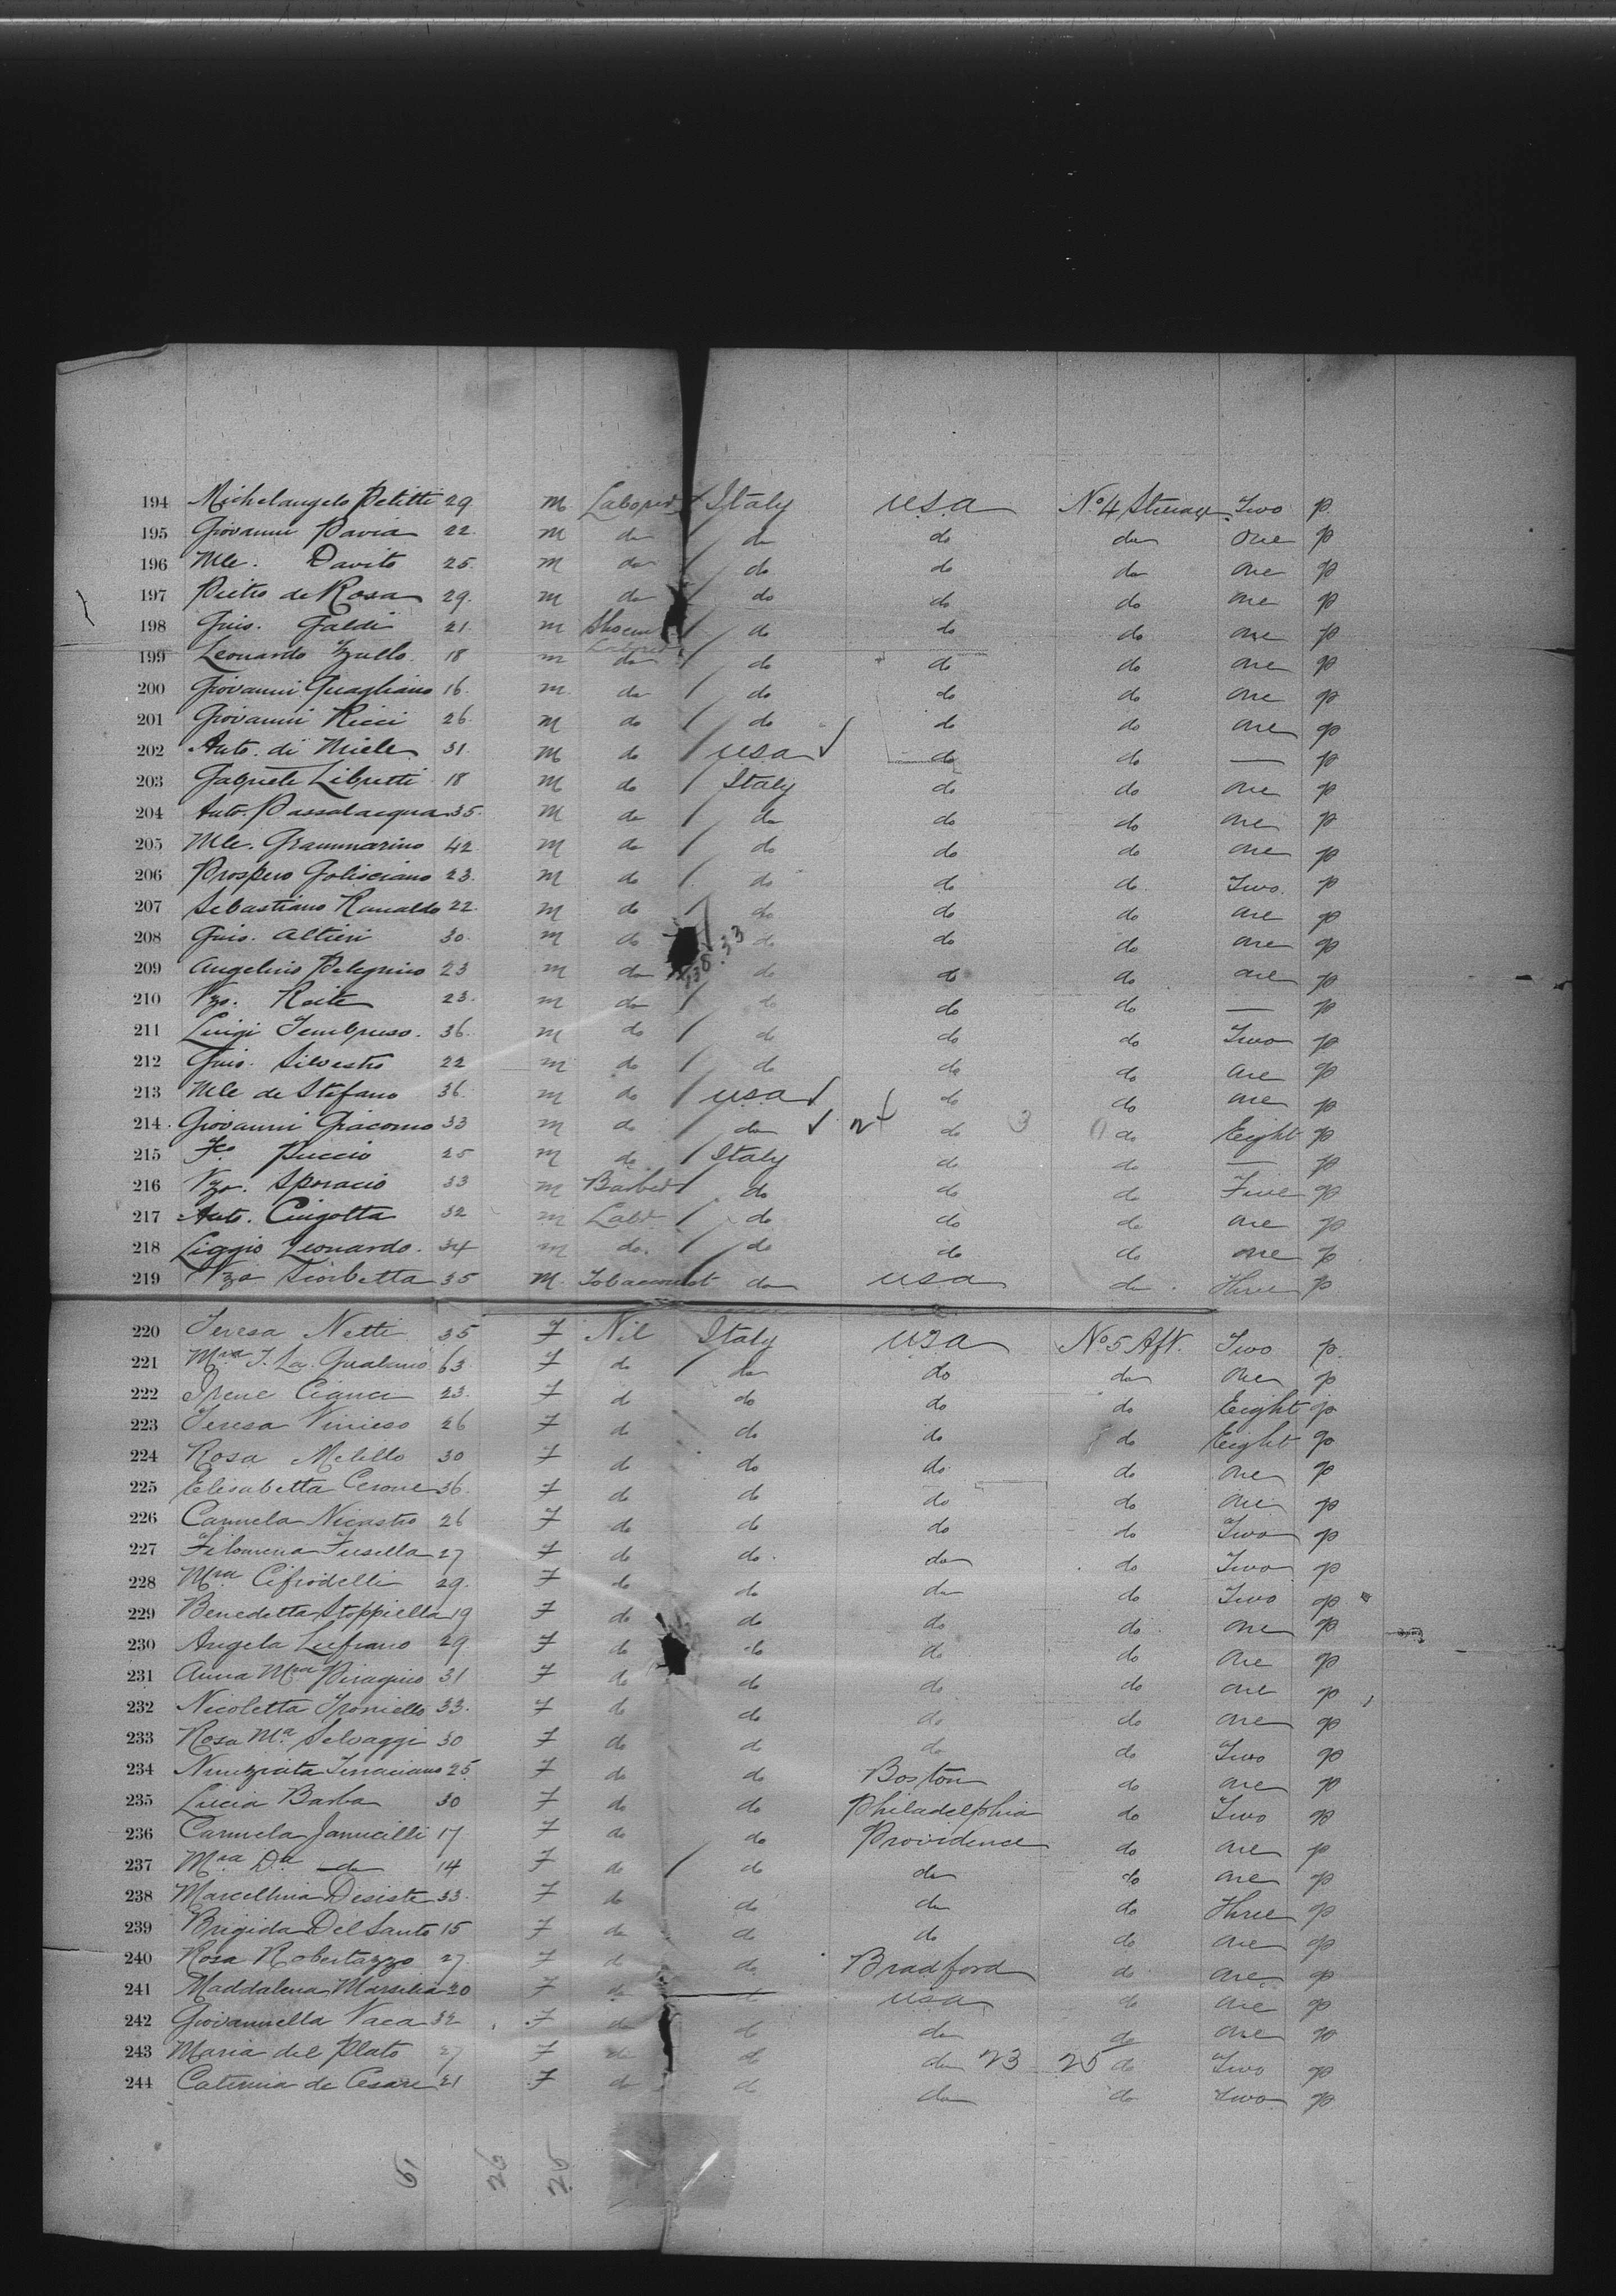 194 Michelangelo Petitti 29 m Laborer Italy USA No 4 Steerage Two p
195 Giovanni Pavia 22 m do do do do One p
196 Mle. Davito 25 m do do do do One p
197 Pietro de Rosa 29 m do do do do One p
198 Guis. Galdi 21 m do do do One p
199 Leonardo Zullo 18 m do do do do One p
200 Giovanni Quagliano 16 m do do do do One p
201 Giovanni Ricci 26 m do do do do One p
202 Anto. di Miele 31 m do USA do do — p
203 Gabriele Libretti 18 m do Italy do do One p
204 Anto. Passalacqua 35 m do do do do One p
205 Mle. Grammarino 42 m do do do do One p
206 Prospero Golisciano 23 m do do do do Two p
207 Sebastiano Ranaldo 22 m do do do do One p
208 Guis. Altieri 30 m do do do do One p
209 Angelino Pelegrino 23 m do do do do One p
210 Vzo. 23 m do do do do — p
211 Luigi 36 m do do do do Two p
212 Guis. Silvestro 22 m do do do do One p
213 Mle de Stefano 36 m do USA do do One p
214 Giovanni Giacomo 33 m do do do do Eight p
215 Fco Puccio 25 m do Italy do do — p
216 Vzo. Sporacio 33 m Barber do do do Five p
217 Anto. Cingotta 32 m Labr do do do One p
218 Liggio Leonardo 34 m do do do do One p
219 Vzo Siorbetta 35 m Tobaconist do USA do Three p
220 Teresa Netti 35 F Nil Italy USA No 5 Aft. Two p
221 Mria 63 F do do do do One p
222 Irene Cianci 23 F do do do do Eight p
223 Teresa Vinieso 26 F do do do do Eight p
224 Rosa Melillo 30 F do do do do One p
225 Elisabetta Cerone 36 F do do do do One p
226 Carmela Nicastro 26 F do do do do Two p
227 Filomena Fusella 27 F do do do do Two p
228 Mria Cifrodelli 29 F do do do do Two p
229 Benedetta Stoppiella 19 F do do do do One p
230 Angela Lufrano 29 F do do do do One p
231 Anna Mria Piragino 31 F do do do do One p
232 Nicoletta 33 F do do do do One p
233 Rosa Ma. Selvaggi 30 F do do do do Two p
234 Nunziata 25 F do do Boston do One p
235 Lucia Barba 30 F do do Philadelphia do Two p
236 Carmela Janucilli 17 F do do Providence do One p
237 Mria Da do 14 F do do do do One p
238 Marcellina Desiste 33 F do do do do Three p
239 Brigida Del Santo 15 F do do do do One p
240 Rosa Robertazzo 27 F do do Bradford do One p
241 Maddalena Marsilia 20 F do do USA do One p
242 Giovannella Vaca 32 F do do do do One p
243 Maria del Plato 27 F do do do 23 25 do Two p
244 Caterina de Cesare 21 F do do do do Two p